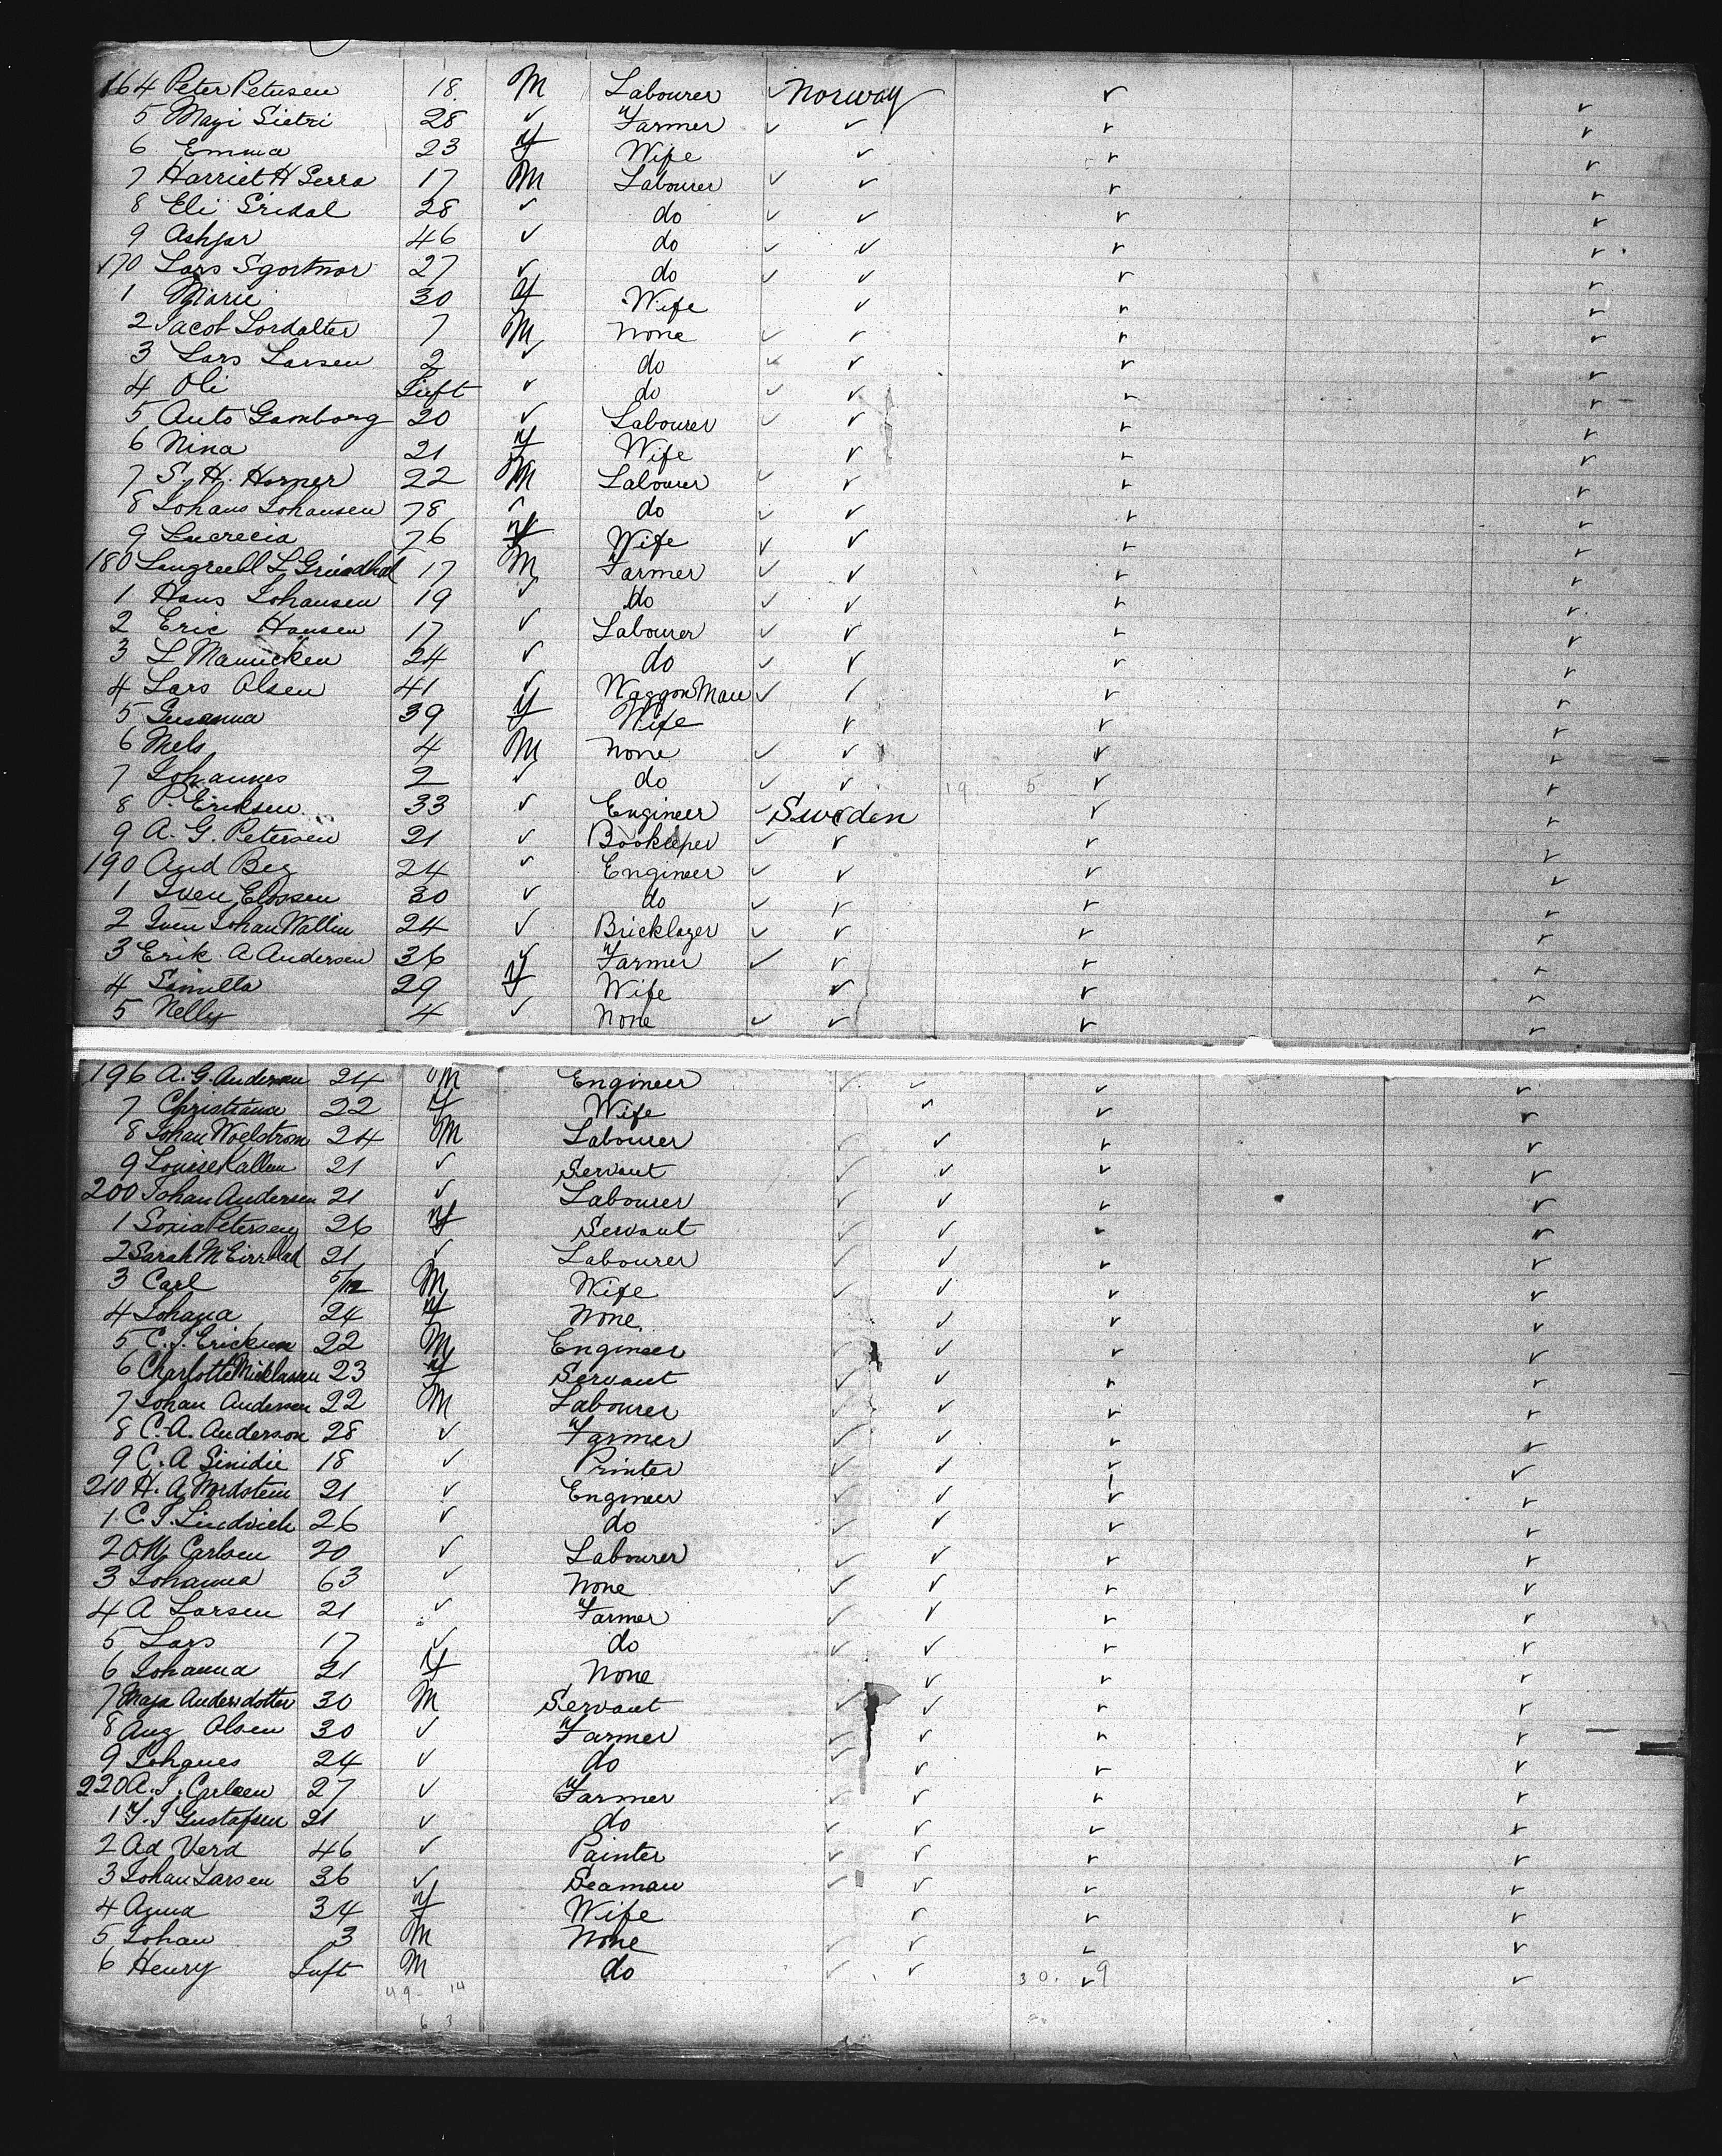 164 Peter Petersen 18 M Labourer ✓ Norway ✓
5 Mayi Sietri 28 ✓ Farmer ✓ ✓ ✓ ✓
6 Emma 23 F Wife ✓ ✓ ✓
7 Harriet H Serra 17 M Labourer ✓ ✓ ✓ ✓
8 Eli Sridal 28 ✓ do ✓ ✓ ✓ ✓
9 Ashjar 46 ✓ do ✓ ✓ ✓ ✓
170 Lars Sgortnor 27 ✓ do ✓ ✓ ✓ ✓
1 Marie 30 F Wife ✓ ✓ ✓
2 Jacob Lordalter 7 M None ✓ ✓ ✓ ✓
3 Lars Larsen 2 ✓ do ✓ ✓ ✓ ✓
4 Oli Inft ✓ do ✓ ✓ ✓ ✓
5 Auto Gamborg 20 ✓ Labourer ✓ ✓ ✓ ✓
6 Nina 21 F Wife ✓ ✓ ✓
7 S. H. Horner 22 M Labourer ✓ ✓ ✓ ✓
8 Johans Johansen 78 ✓ do ✓ ✓ ✓ ✓
9 Lucrecia 76 F Wife ✓ ✓ ✓ ✓
180 L 17 M Farmer ✓ ✓ ✓ ✓
1 Hans Johansen 19 ✓ do ✓ ✓ ✓ ✓
2 Eric Hansen 17 ✓ Labourer ✓ ✓ ✓ ✓
3 L Mannicken 24 ✓ do ✓ ✓ ✓ ✓
4 Lars Olsen 41 ✓ Waggon Man ✓ ✓ ✓ ✓
5 Susanna 39 F Wife ✓ ✓ ✓
6 Mels 4 M None ✓ ✓ ✓ ✓
7 Johannes 2 ✓ do ✓ ✓ 19. 5 ✓ ✓
8 P. Eriksen 33 ✓ Engineer ✓ Sweden ✓ ✓
9 A. G. Petersen 21 ✓ Bookkeper ✓ ✓ ✓ ✓
190 And Beg 24 ✓ Engineer ✓ ✓ ✓ ✓
1 Sven Elossen 30 ✓ do ✓ ✓ ✓ ✓
2 Sven Johan Wallin 24 ✓ Bricklayer ✓ ✓ ✓ ✓
3 Erik A Andersen 36 ✓ Farmer ✓ ✓ ✓ ✓
4 29 F Wife ✓ ✓ ✓
5 Nelly 4 ✓ None ✓ ✓ ✓ ✓
196 A. G. Andersen 24 M Engineer ✓ ✓ ✓ ✓
7 Christiana 22 F Wife ✓ ✓ ✓
8 Johan Woelstrom 24 M Labourer ✓ ✓ ✓ ✓
9 Louise Kallen 21 ✓ Servant ✓ ✓ ✓ ✓
200 Johan Andersen 21 ✓ Labourer ✓ ✓ ✓ ✓
1 Soxia Petersen 26 F Servant ✓ ✓ ✓ ✓
2 Sarah M 21 ✓ Labourer ✓ ✓ ✓ ✓
3 Carl 5/12 M Wife ✓ ✓ ✓ ✓
4 Johana 24 F None ✓ ✓ ✓
5 C. J. Ericksen 22 M Engineer ✓ ✓ ✓ ✓
6 Charlotte Micklassen 23 F Servant ✓ ✓ ✓ ✓
7 Johan Andersen 22 M Labourer ✓ ✓ ✓ ✓
8 C. A. Anderson 28 ✓ Farmer ✓ ✓ ✓ ✓
9 C. A Sinidie 18 ✓ Printer ✓ ✓ ✓ ✓
210 H. A. Nordstein 21 ✓ Engineer ✓ ✓ ✓ ✓
1 C. J. Lindvich 26 ✓ do ✓ ✓ ✓ ✓
2 Carlsen 20 ✓ Labourer ✓ ✓ ✓ ✓
3 Johanna 63 ✓ None ✓ ✓ ✓ ✓
4 A Larsen 21 ✓ Farmer ✓ ✓ ✓ ✓
5 Lars 17 ✓ do ✓ ✓ ✓ ✓
6 Johanna 21 F None ✓ ✓ ✓
7 Maja Andersdotter 30 M Servant ✓ ✓ ✓ ✓
8 Aug Olsen 30 ✓ Farmer ✓ ✓ ✓ ✓
9 Johanes 24 ✓ do ✓ ✓ ✓ ✓
220 A. J. Carlsen 27 ✓ Farmer ✓ ✓ ✓ ✓
1 F. J Gustafsen 21 ✓ do ✓ ✓ ✓ ✓
2 Ad Verd 46 ✓ Painter ✓ ✓ ✓ ✓
3 Johan Larsen 36 ✓ Seaman ✓ ✓ ✓ ✓
4 Anna 34 F Wife ✓ ✓ ✓
5 Johan 3 M None ✓ ✓ ✓ ✓
6 Henry Inft M do ✓ ✓ 30. 9 ✓ ✓
49- 14
6 3